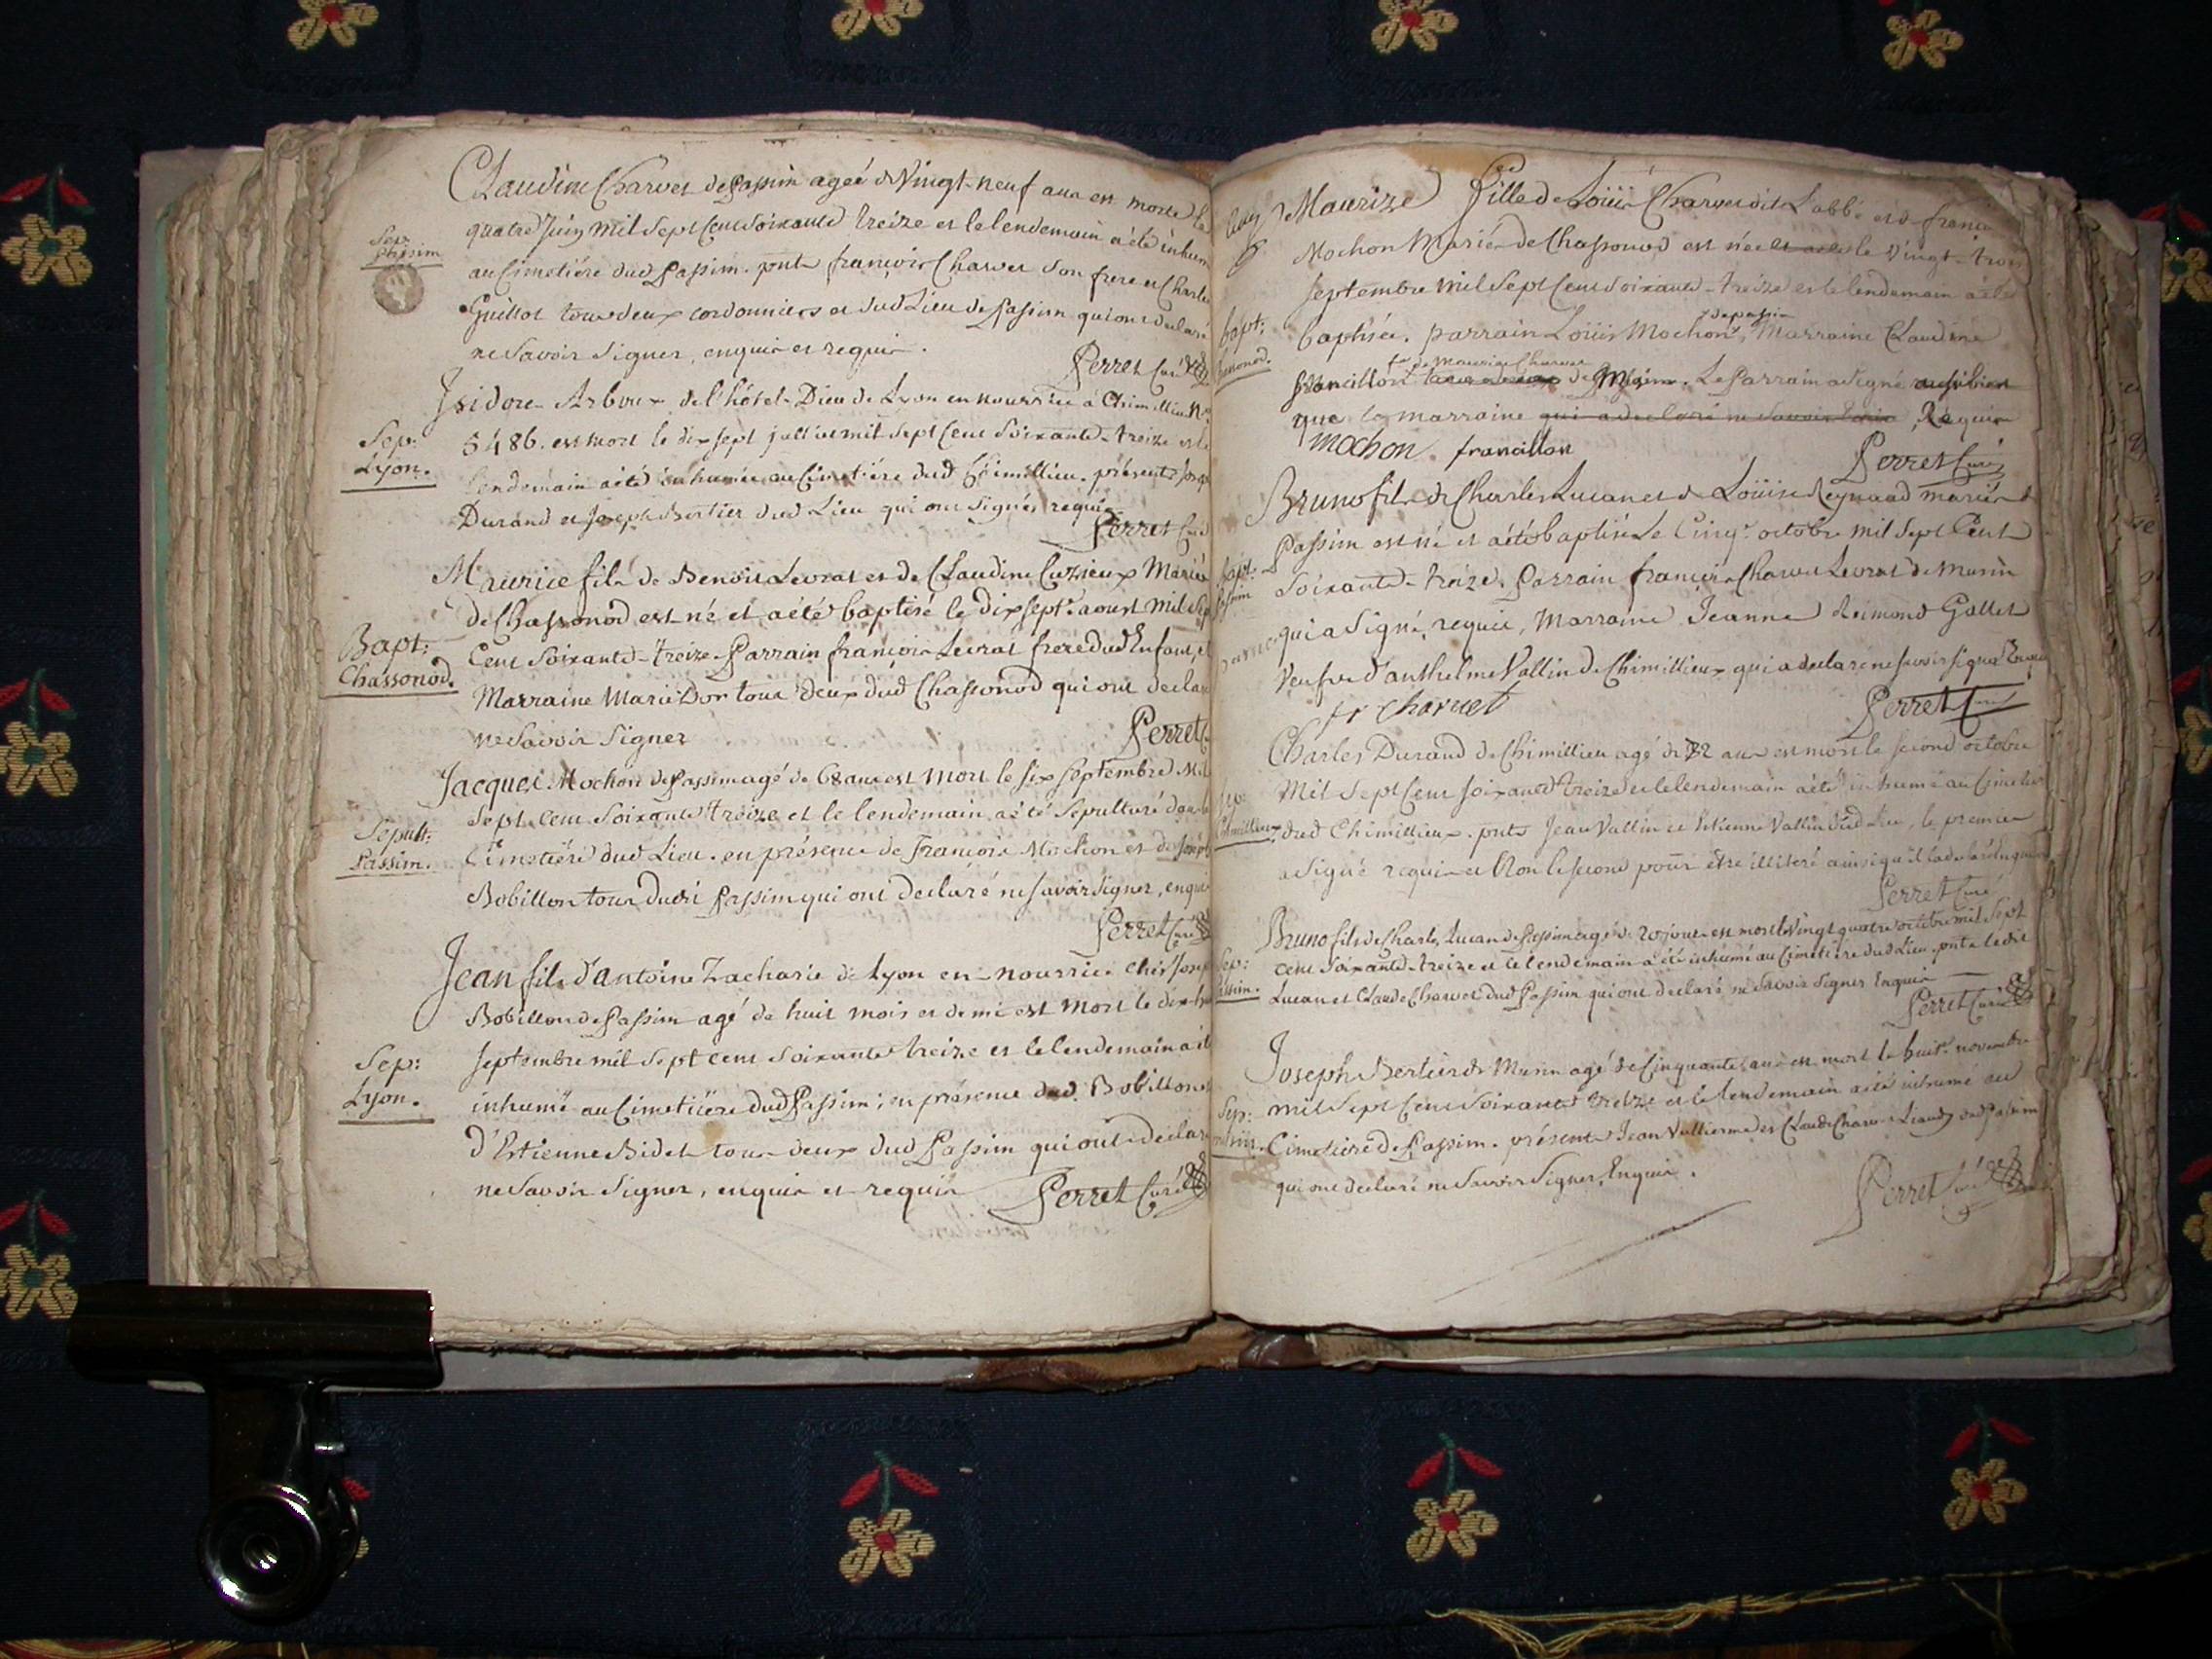 Claudine Charvet de Passin ageé de Vingt-neuf ans est morte le
quatre Juin mil sept Cent soixante treize et le lendemain a été inhum
Sep:
Passim
au Cimetiére dud Passim. pnts françois Charvet son frere et Charle
Guillot tous deux cordonniers et dud Lieu de Passim qui ont declaré
ne savoir signer, enquis et requis.
Perret Curé
Isidore Arboux de l'hôtel-Dieu de Lyon en nourrice à Chimillieu No
Sep:
Lyon.
5486. est mort le dix sept juillet mil sept Cent soixante-treize et le
lendemain a été inhumé au Cimetiére dud Chimillieu. présents
Durand et Joseph Bertier dud Lieu qui ont signés requis
Perret Curé
Maurice fils de Benoit Levrat et de Claudine Cuzieux Mariés
de Chassonod est né et a été baptisé le dix sept aoust mil sep
Bapt:
Chassonod.
Cent soixante-treize. Parrain françois Levrat frere dud Enfant, et
Marraine Marie Dor tous deux dud Chassonod qui ont declaré
ne savoir signer
Perret C
Jacques Mochon de Passim agé de 68 ans est mort le six septembre Mil
sept cent soixante treize et le lendemain a été sepulturé dans le
Sepult:
Passim.
Cimetiére dud Lieu. en présence de François Mochon et de Joseph
Bobillon tous dudit Passim qui ont declaré ne savoir signer, enquis
Perret Curé
Jean fils d'antoine Zacharie de Lyon en nourrice chés Joseph
Bobillon de Passim agé de huit mois et demi est mort le dix hui
Sep:
Lyon.
septembre mil sept cent soixante treize et le lendemain a été
inhumé au Cimetiére dud Passim; en présence dud Bobillon et
d'Estienne Bidet tous deux dud Passim qui ont declaré
ne savoir signer, enquis et requis
Perret Curé
Maurize fille de Loüis Charvet dit L'abbé et de franc
Mochon Mariés de Chassonod est née et a été le vingt-trois
septembre mil sept Cent soixante-treize et le lendemain a été
bapt:
baptisée. parrain Loüis Mochon de passin, Marraine Claudine
francillon fe de Maurice Charvet de Le Parrain a signé aussi bien
que la marraine qui a declaré ne savoir Requis
mochon. francillon
Perret Curé
Bruno fils de Charles Lucan et de Loüise Reynaud mariés de
Passim est né et a été baptisé Le Cinq octobre mil sept Cent
bapt:
passim
soixante-treize. Parrain françois Charvet Levrat de Munin
qui a signé, requis, Marraine Jeanne Reimond Gallet
Veufve d'anthelme Vallin de Chimillieux qui a declaré ne savoir signer Enquis
fr charvet
Perret Curé
Charles Durand de Chimillieu agé de 72 ans est mort le second octobre
Mil sept Cent soixante treize et le lendemain a été inhumé au Cimetiere
Sep:
Chimillieux
dud Chimillieux. pnts Jean Vallin et Estienne Vallin dud Lieu, le premier
a signé requis et Non le second pour être illiteré ainsi qu'il l'a declaré Enquis
Perret Curé
Bruno fils de Charles Lucan de Passim agé de 20 jours est mort le Vingt quatre octobre mil sept
Sep:
passim.
cent soixante-treize et le lendemain a été inhumé au Cimetiere dud Lieu. pnts ledit
Lucan et Claude Charvet dud Passim qui ont declaré ne savoir signer Enquis
Perret Curé
Joseph Bertier de Munin agé de Cinquante ans est mort le huit novembre
Sep:
munin.
mil sept Cent soixante treize et le lendemain a été inhumé au
Cimetiere de Passim. présents Jean Vullierme et Claude Charvet dud Passim
qui ont declaré ne savoir signer, Enquis.
Perret Curé